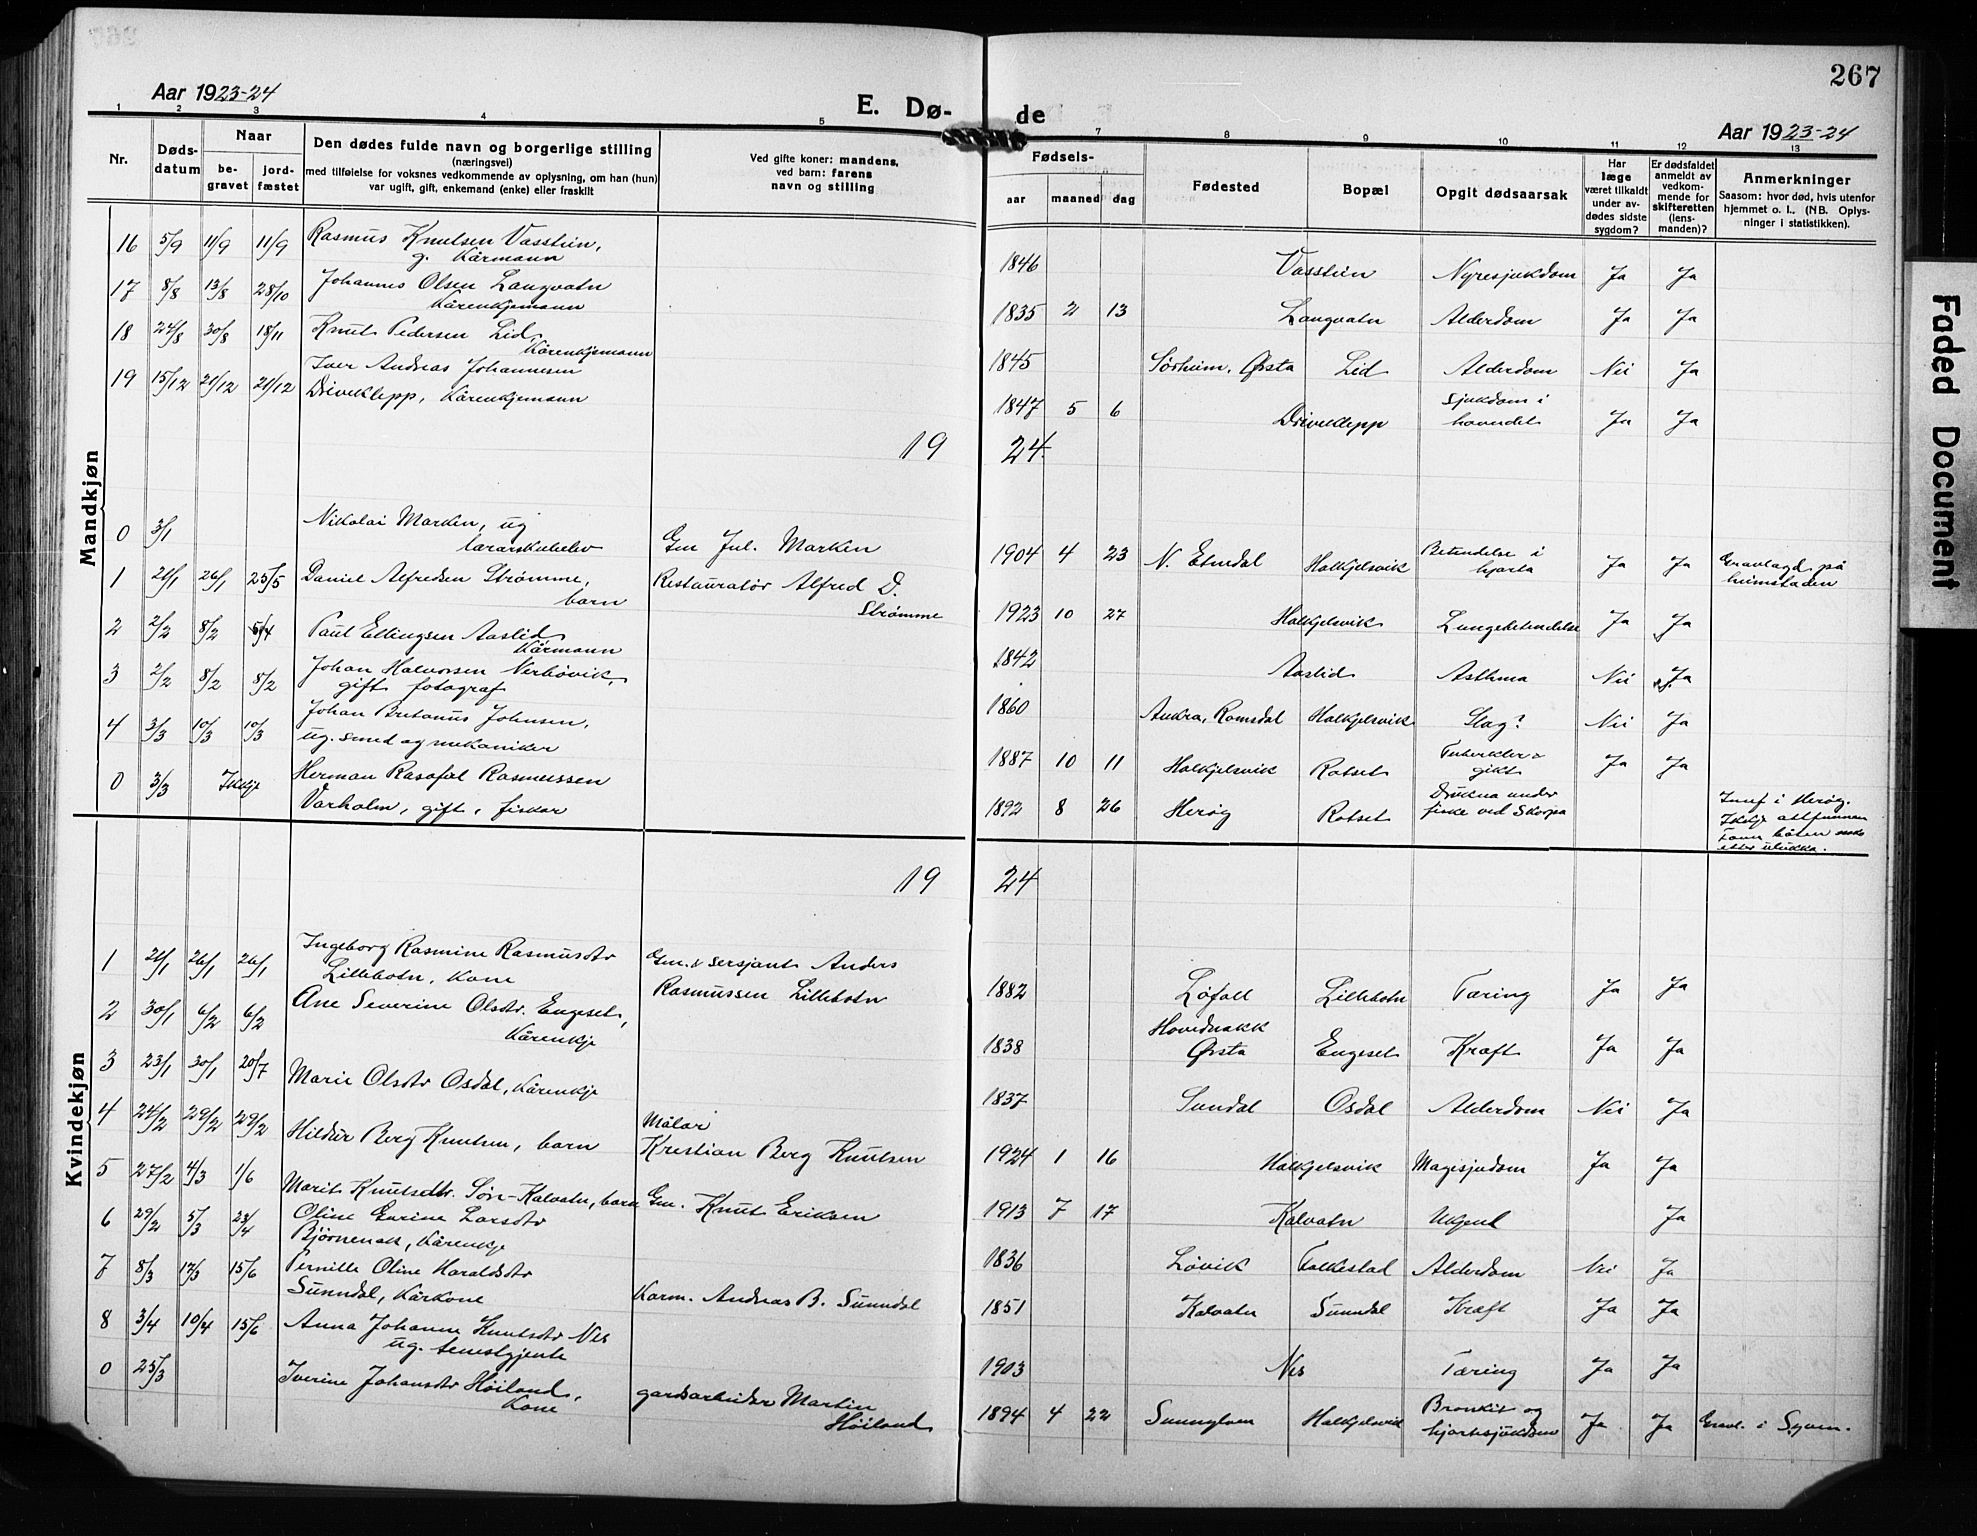 267
Aar 1923-24
E. Dø-
de
Aar 1923-24
1 2 3 4 5 7 8 9 10 11 12 13
Nr.
Døds-
datum
Naar
be-
gravet
jord-
fæstet
Den dødes fulde navn og borgerlige stilling
(næringsvei)
med tilføielse for voksnes vedkommende av oplysning, om han (hun)
var ugift, gift, enkemand (enke) eller fraskilt
Ved gifte koner: mandens,
ved barn: farens
navn og stilling
Fødsels-
aar maaned dag
Fødested
Bopæl
Opgit dødsaarsak
Har
læge
været tilkaldt
under av-
dødes sidste
sygdom?
Er dødsfaldet
anmeldt av
vedkom-
mende for
skifteretten
(lens-
manden)?
Anmerkninger
Saasom: hvor død, hvis utenfor
hjemmet o. l., (NB. Oplys-
ninger i statistikken).
Mandkjøn
16 5/9 11/9 11/9 Rasmus Knutsen Vasstein,
g. Kårmann
1846 Vasstein Nyresjukdom Ja Ja
17 8/8 13/8 28/10 Johannes Olsen Langvatn
Kårenkjemann
1835 2 13 Langvatn Alderdom Ja Ja
18 24/8 30/8 18/11 Knut Pedersen Lid,
Kårenkjemann
1845 Sørheim, Ørsta Lid Alderdom Nei Ja
19 15/12 21/12 21/12 Iver Andreas Johannesen
Driveklepp, Kårenkjemann
1847 5 6 Driveklepp Sjukdom i
hovudet Ja Ja
19 24.
0 3/1 Nikolai Marken, ug
lærarskuleelev
Gm Jul. Marken
1904 4 23 N. Etnedal Halkjelsvik Betendelse i
hjarta Ja Ja Gravlagd på
heimstaden
1 21/1 26/1 25/5 Daniel Alfredsen Strømme,
barn
Restauratør Alfred D.
Strømme
1923 10 27 Halkjelsvik Lungebetendelse Ja Ja
2 2/2 8/2 5/4 Paul Ellingsen Aaslid
Kårmann
1842 Aaslid Asthma Nei Ja
3 2/2 8/2 8/2 Johan Halvorsen Nerbøvik,
gift fotograf
1860 Aukra, Romsdal Halkjelsvik Slag? Nei Ja
4 3/3 10/3 10/3 Johan Johnsen,
ug. smed og mekaniker
1887 10 11 Halkjelsvik Rotset Tuberkler &
gikt Ja Ja
0 3/3 Ikkje Herman Rasmussen
Varholm, gift, fiskar
1892 8 26 Herøy Rotset Drukna under
fiske ved Skorpa
Innf i Herøy.
Ikkje attfunnen
båten
etter ulukka.
Kvindekjøn
19 24
1 21/1 26/1 26/1 Ingeborg Rasmine Rasmusdtr
Lillebotn, kone
Gm. & sersjant Anders
Rasmussen Lillebotn
1882 Løfoll Lillebotn Tæring Ja Ja
2 30/1 6/2 6/2 Ane Severine Olsdtr. Engeset,
Kårenkje
1838 Hovdenakk
Ørsta Engeset Kræft Ja Ja
3 23/1 30/1 20/7 Marie Olsdtr Osdal, Kårenkje
1837 Sundal Osdal Alderdom Nei Ja
4 24/2 29/2 29/2 Hildur Berg Knutsen, barn
Målar
Kristian Berg Knutsen
1924 1 16 Halkjelsvik Magesjudom Ja Ja
5 27/2 4/3 1/6 Marit Knutsdtr. Søre-Kalvatn, barn
Gm. Knut Eriksen
1913 7 17 Kalvatn Ukjent Ja
6 29/2 5/3 23/4 Oline Larsdtr
Bjørnenak, Kårenkje
1836 Løvik Folkestad Alderdom Nei Ja
7 8/3 15/6 Pernille Oline Haraldsdtr
Sunndal, Kårkone
Karm. Andreas B. Sunndal
1851 Kalvatn Sunndal Kræft Ja Ja
8 3/4 10/4 15/6 Anna Johanne Knutsdtr Nes
ug. tenestgjente
1903 Nes Tæring Ja Ja
0 25/3 Iverine Johansdtr Høiland,
Kone
gardsarbeider Martin
Høiland
1894 4 22 Sunnylven Halkjelsvik Bronkit og
hjartesjukdom Ja Ja Gravl. i Syven.
Faded Document